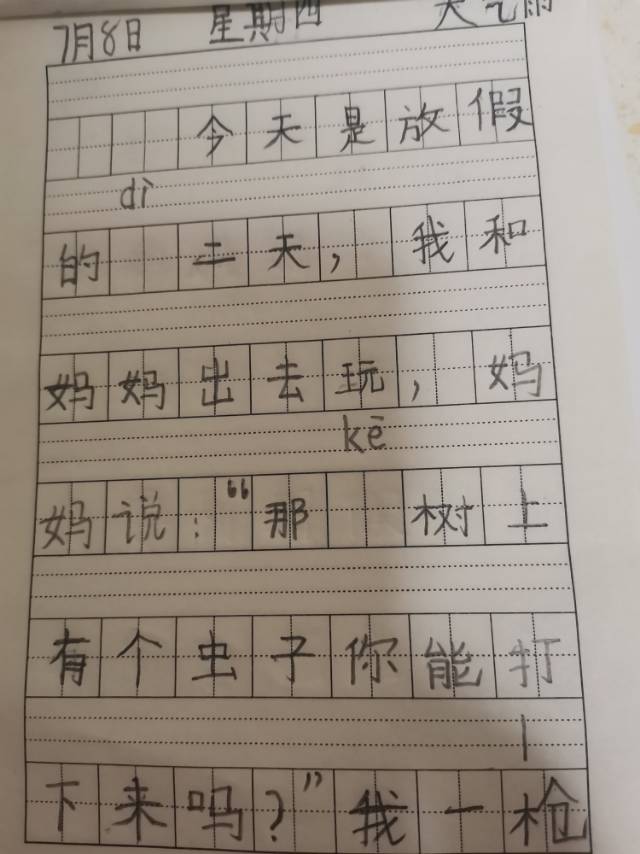 7月8日 星期四 天气雨
今天是放假
dì
的 二天，我和
妈妈出去玩，妈
kē
妈说：“那 树上
有个虫子你能打
下来吗？”我一枪